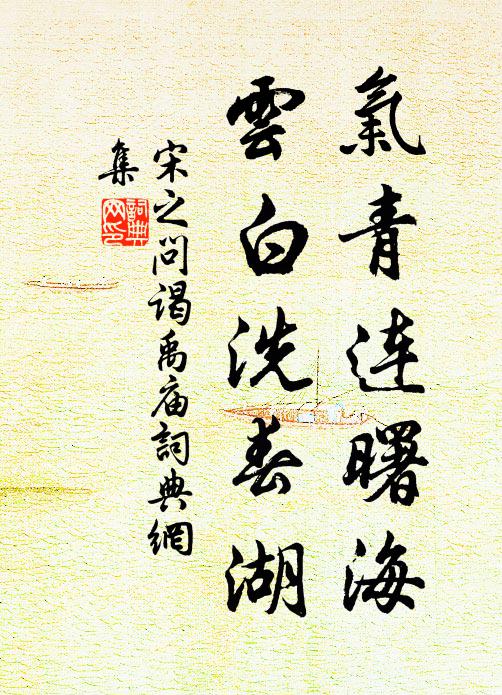 氣青连曙海
雲白洗春湖
宋之问谒禹庙詞典網
集
詞典网印